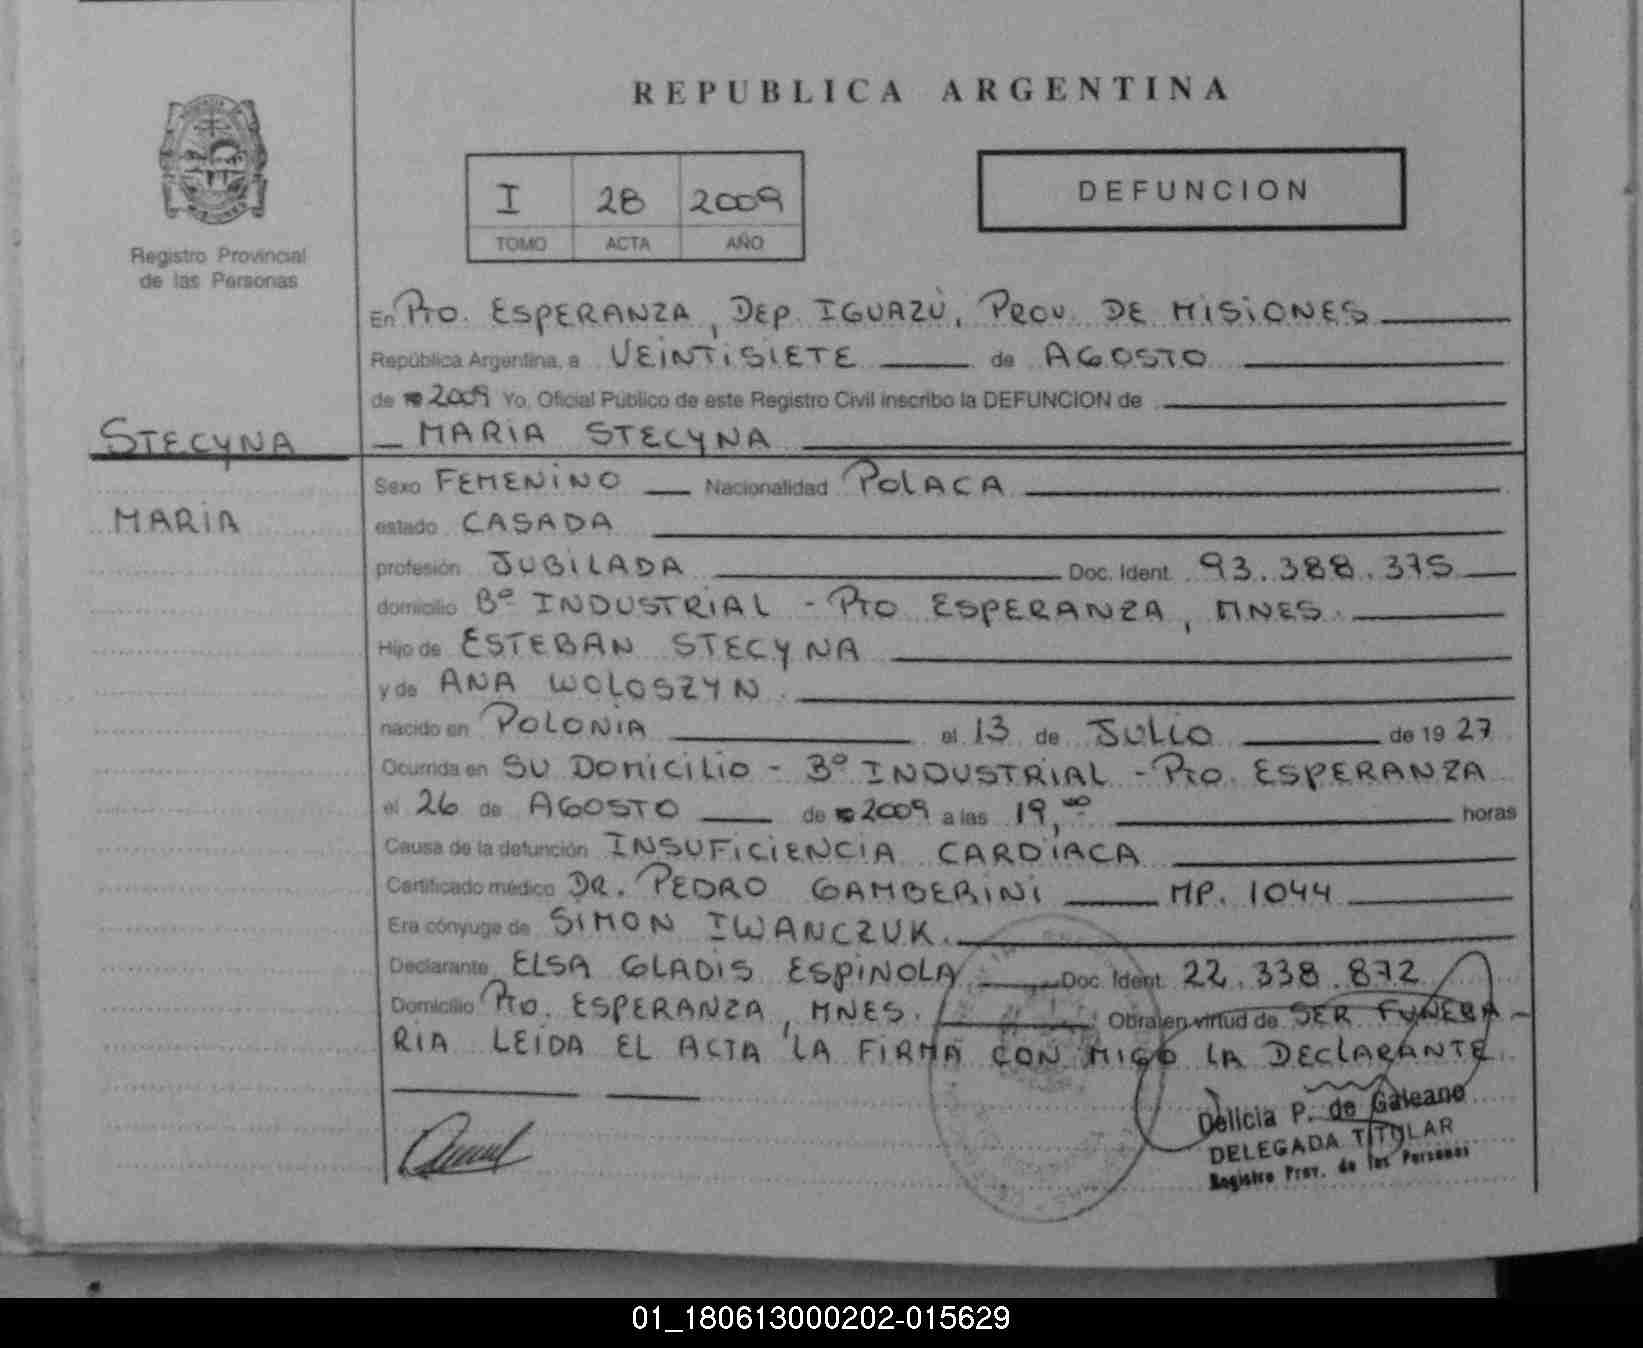 REPUBLICA ARGENTINA
I 28 2009
TOMO ACTA AÑO
DEFUNCION
Registro Provincial
de las Personas
En Pto. ESPERANZA, DEP. IGUAZÚ, PROV. DE MISIONES
República Argentina, a VEINTISIETE de AGOSTO
de 2009 Yo, Oficial Público de este Registro Civil inscribo la DEFUNCION de
STECYNA MARIA STECYNA
Sexo FEMENINO Nacionalidad POLACA
MARIA estado CASADA
profesión JUBILADA Doc. Ident. 93.388.375
domicilio Bº INDUSTRIAL - Pto ESPERANZA, MNES.
Hijo de ESTEBAN STECYNA
y de ANA WOLOSZYN
nacido en POLONIA el 13 de JULIO de 1927
Ocurrida en SU DOMICILIO - Bº INDUSTRIAL - Pto. ESPERANZA
el 26 de AGOSTO de 2009 a las 19,00 horas
Causa de la defunción INSUFICIENCIA CARDIACA
Certificado médico DR. PEDRO GAMBERINI MP. 1044
Era cónyuge de SIMON IWANCZUK.
Declarante ELSA GLADIS ESPINOLA Doc. Ident. 22.338.872
Domicilio Pto. ESPERANZA, MNES. Obra en virtud de SER FUNERA-
RIA LEIDA EL ACTA LA FIRMA CON MIGO LA DECLARANTE
Delicia P. de Galeano
DELEGADA TITULAR
Registro Prov. de las Personas
01_180613000202-015629